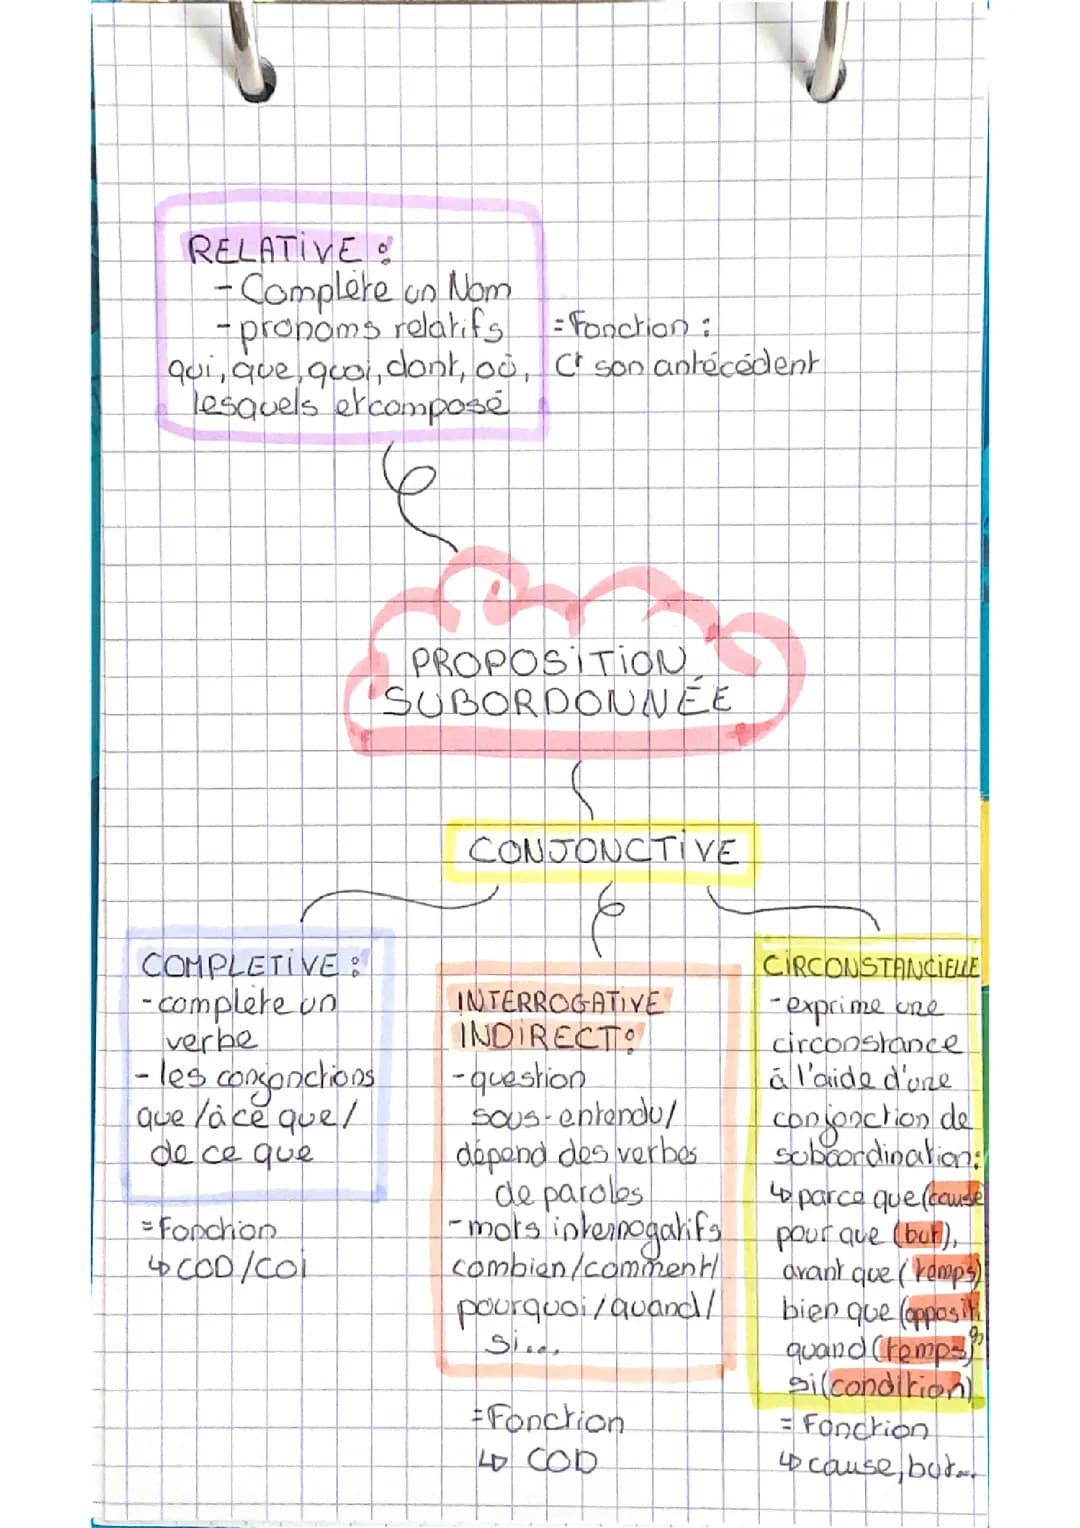 RELATIVE :
- Complète un Nom
- pronoms relatifs
qui, que, quoi, dont, où,
lesquels et composé
= Fonction :
Ct son antécédent
PROPOSITION
SUBORDONNÉE
CONJONCTIVE
COMPLETIVE :
- complète un
verbe
- les conjonctions
que / à ce que /
de ce que
= Fonction
↳ COD / COI
INTERROGATIVE
INDIRECT :
- question
sous-entendu /
dépend des verbes
de paroles
- mots interrogatifs
combien / comment /
pourquoi / quand /
si...
= Fonction
↳ COD
CIRCONSTANCIELLE
- exprime une
circonstance
à l'aide d'une
conjonction de
subcordination :
↳ parce que (cause
pour que (but),
avant que (temps)
bien que (opposit°,
quand (temps),
si (condition)
= Fonction
↳ cause, but...